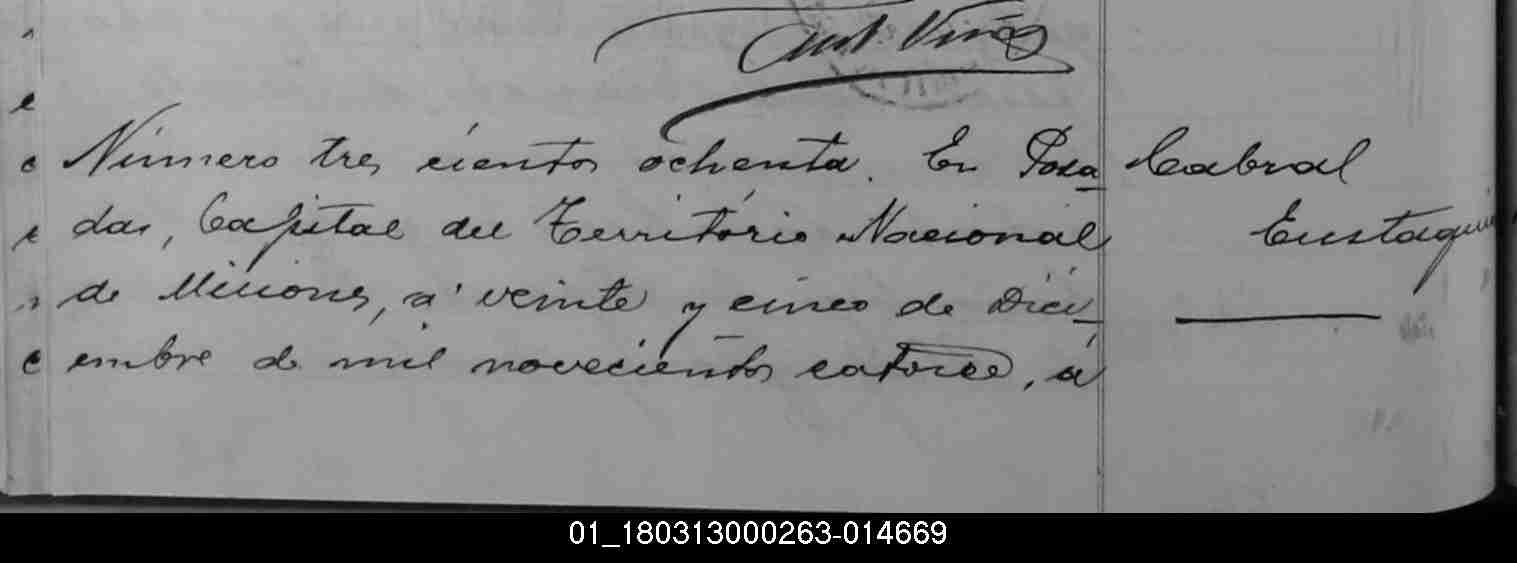 Número tres cientos ochenta. En Posa-
das, Capital del Território Nacional
de Misiones, á veinte y cinco de Dici-
embre de mil novecientos catorce, á
Cabral
Eustaqui
01_180313000263-014669